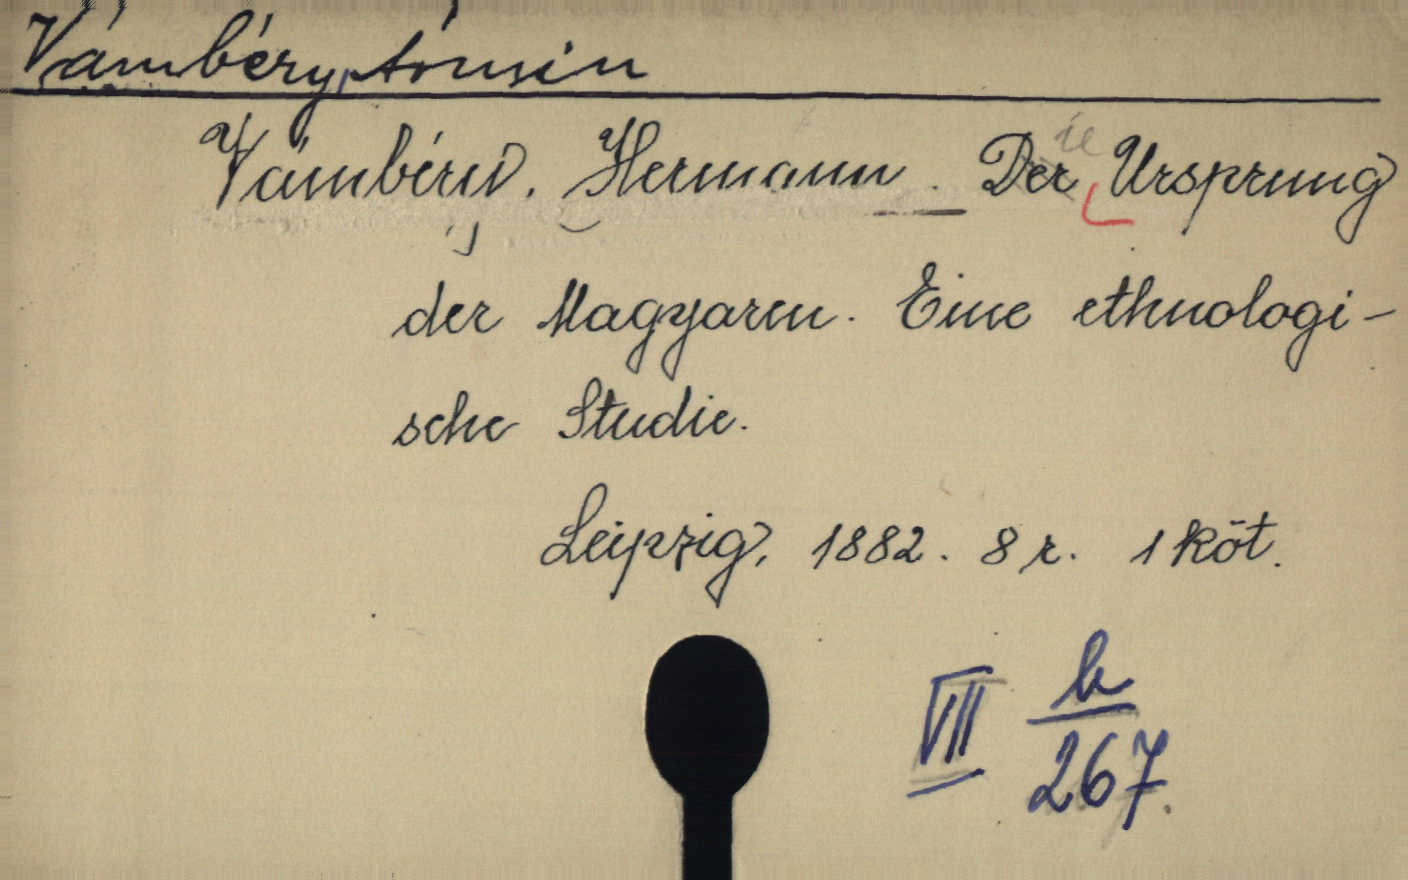 Vámbéry, Ármin
Vámbéry, Hermann. Der Ursprung
der Magyaren. Eine ethnologi-
sche Studie.
Leipzig, 1882. 8 r. 1 köt.
VII b
267.